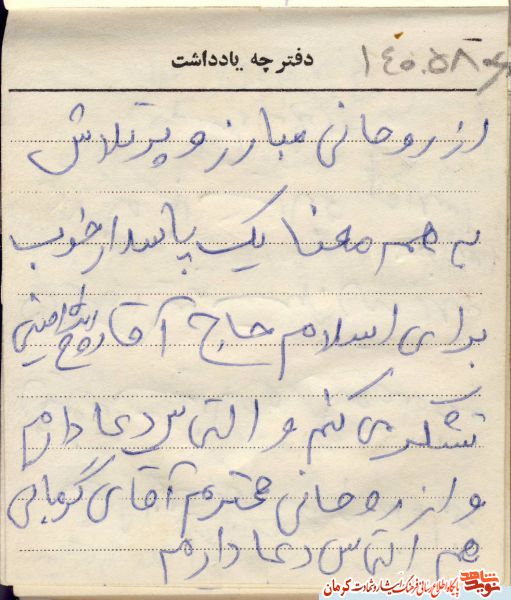 دفترچه یادداشت
از روحانی مبارز و پرتلاش
به هم معنا یک پاسدار خوب
برای اسلام حاج آقا روح الله امینی
تشکر می کنم و التماس دعا دارم
و از روحانی محترم آقای گرمانی
هم التماس دعا دارم
نوید شاهد
پایگاه اطلاع رسانی فرهنگ ایثار و شهادت کرمان